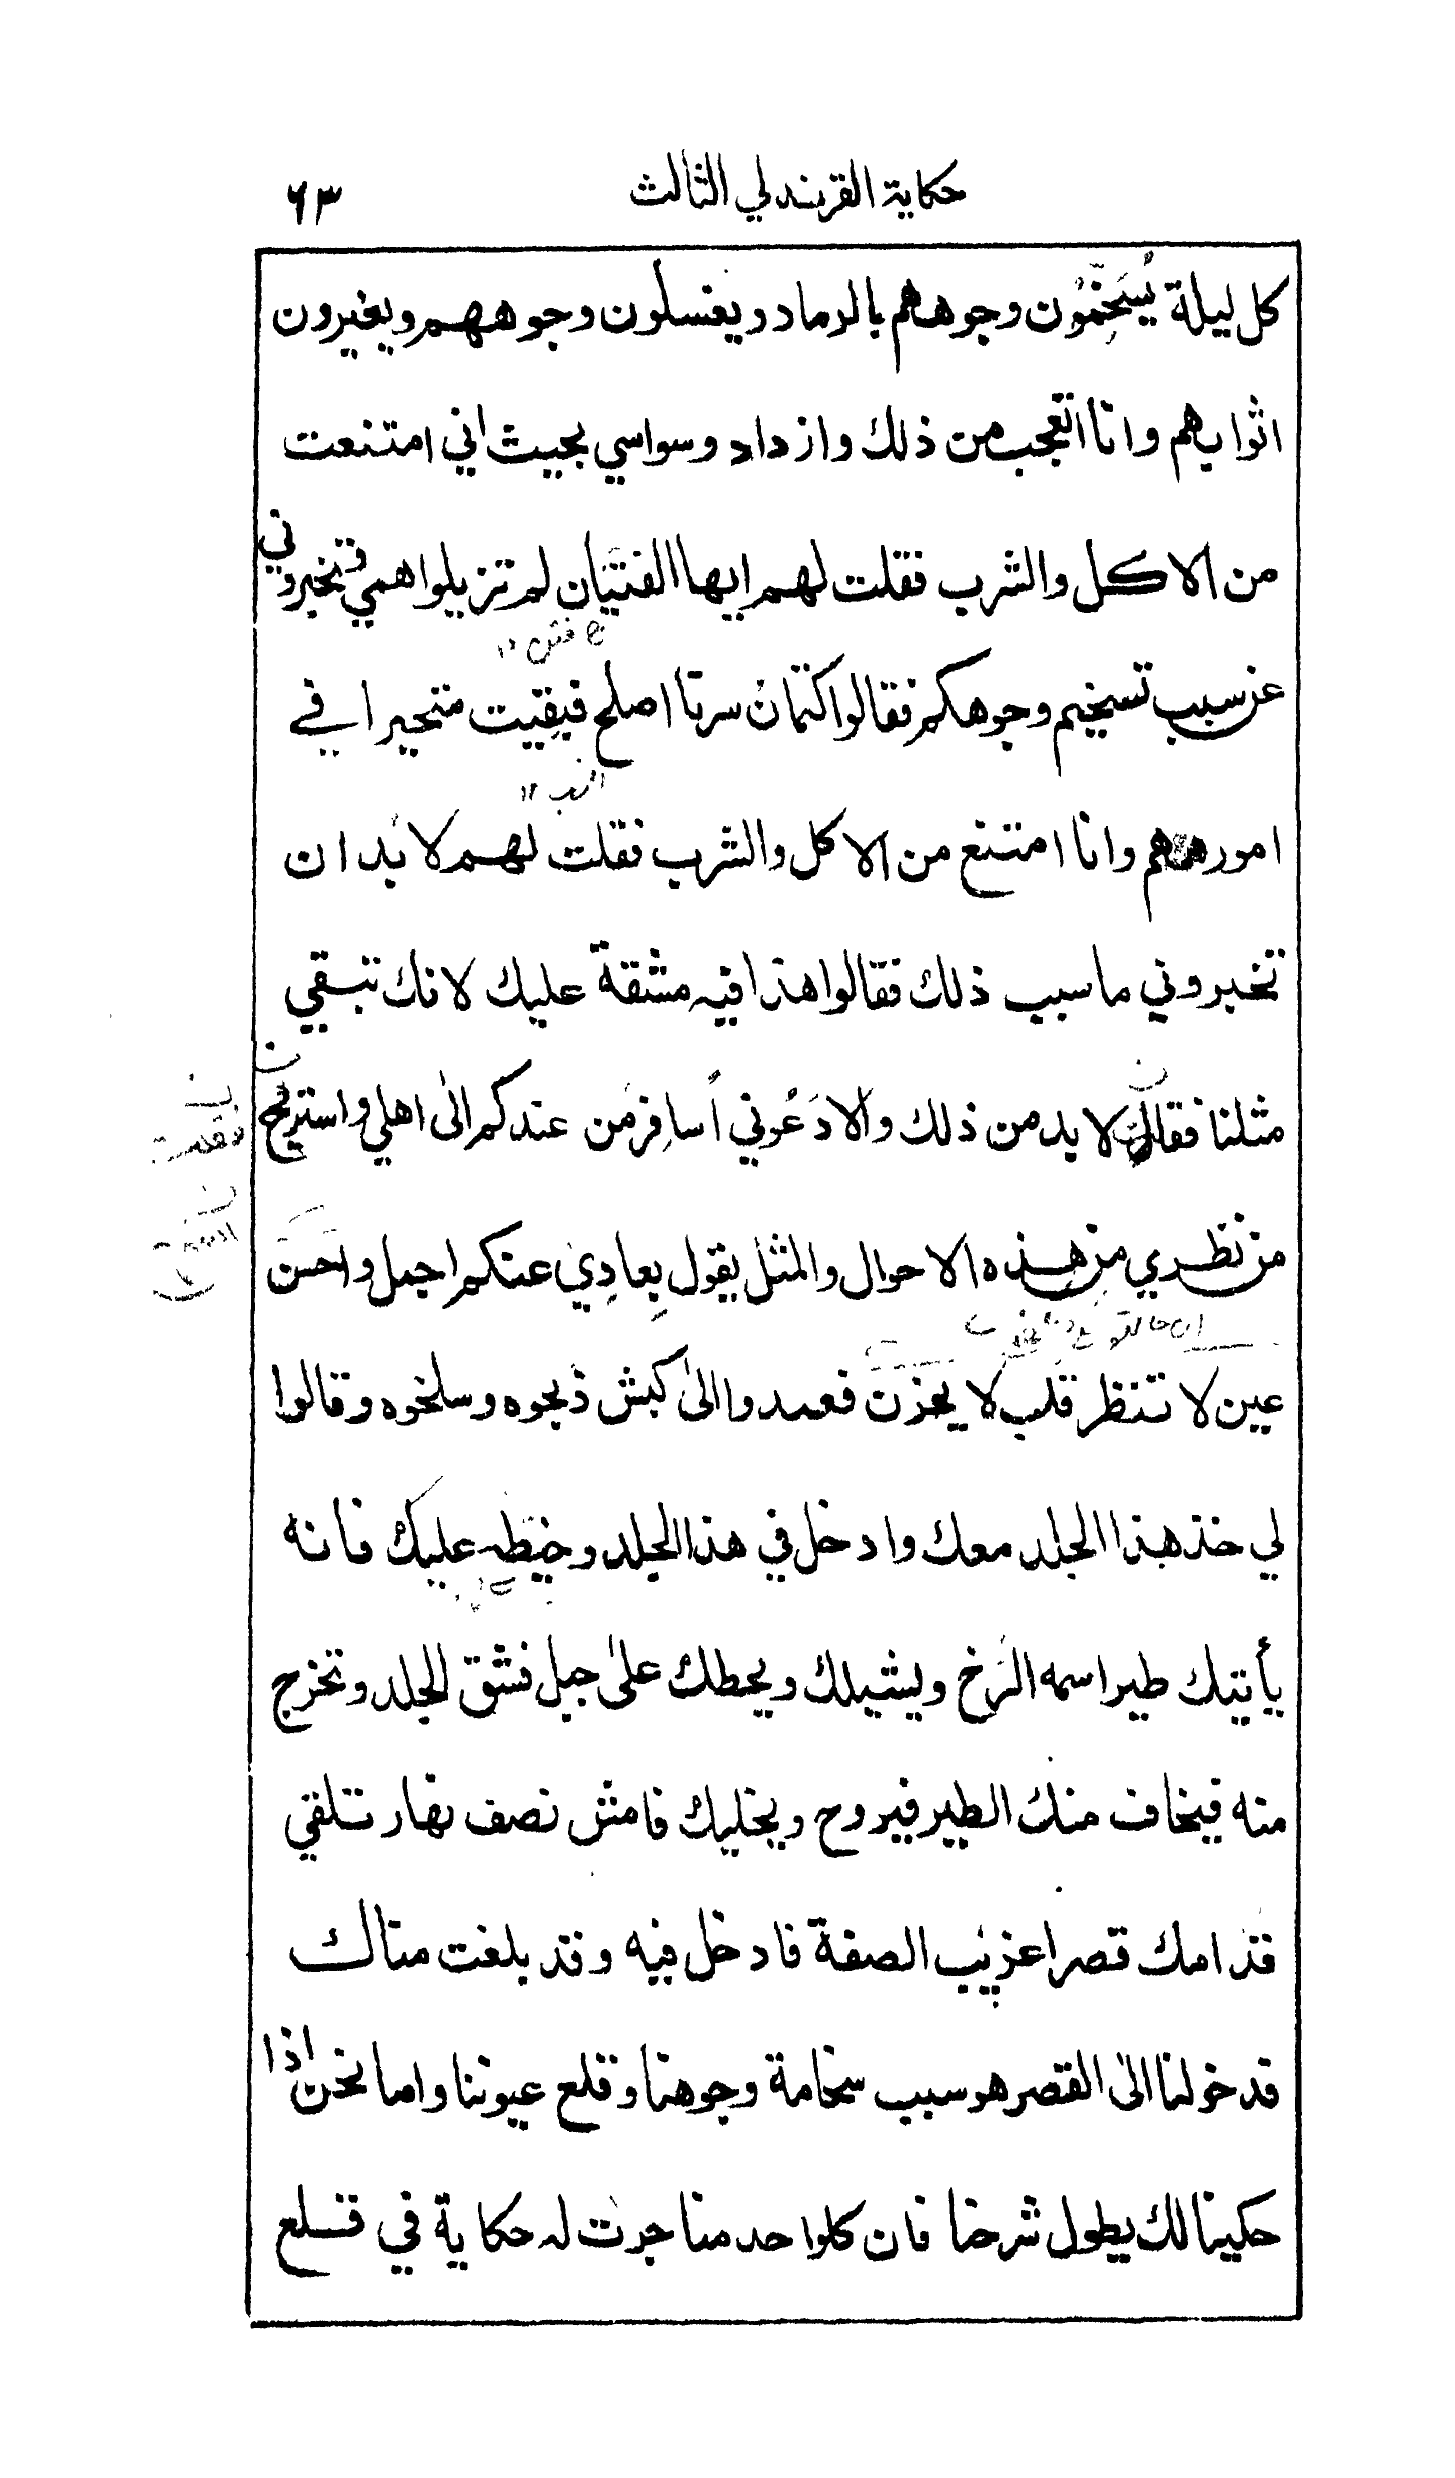 حكاية القرندلي الثالث ٦٣
كل ليلة يُسَخِّمُون وجوههم بالرماد ويغسلون وجوههم ويغيرون
اثوابهم وانا اتعجب من ذلك وازداد وسواسي بحيث اني امتنعت
من الاكل والشرب فقلت لهم ايها الفتيان لم تزيلوا همي وتخبروني
عن سبب تسخيم وجوهكم فقالوا كتمان سرنا اصلح فبقيت متحيرا في
امورهم وانا امتنع من الاكل والشرب فقلت لهم لا بد ان
تخبروني ما سبب ذلك فقالوا هذا فيه مشقة عليك لانك تبقي
مثلنا فقالت لا بد من ذلك والا دَعُوني أسافِر من عندكم الى اهلي واستريح
من نظري من هذه الاحوال والمثل يقول بِعادِي عنكم اجمل واحسن
عين لا تنظر قلب لا يحزن فعمدوا الى كبش ذبحوه وسلخوه وقالوا
لي خذ هذا الجلد معك وادخل في هذا الجلد وخيّطه عليك فانه
يأتيك طير اسمه الرَخ ويشيلك ويحطك على جبل فشق الجلد وتخرج
منه فيخاف منك الطير فيروح ويخليك فامش نصف نهار تلقي
قدامك قصرا غريب الصفة فادخل فيه وقد بلغت مناك
قد خولنا الى القصر هو سبب سخامة وجوهنا وقلع عيوننا واما نحن اذا
حكينا لك يطول شرحنا فان كلواحد منا جرت له حكاية في قلع